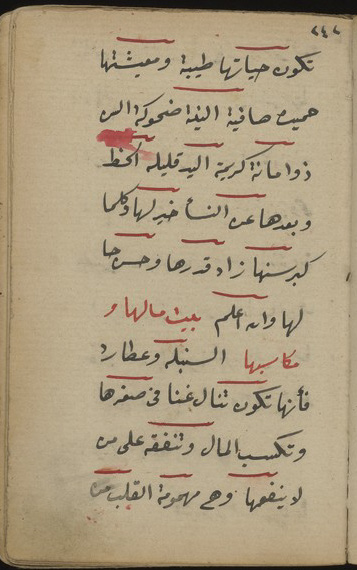 ٢٤٢
تكون حياتها طيبة ومعيشتها
حميده صافية النية ضحوكة السن
ذو امانة كريمة اليد قليلة الحظ
وبعدها عن النسأ خير لها وكلما
كبر سنها زاد قدرها وحسن حا
لها وان اعلم بيت مالها و
مكاسبها السنبله وعطارد
فأنها تكون تنال غنا في صغرها
وتكسب المال وتنفقه على من
لا ينفعها وهي مهمومة القلب من